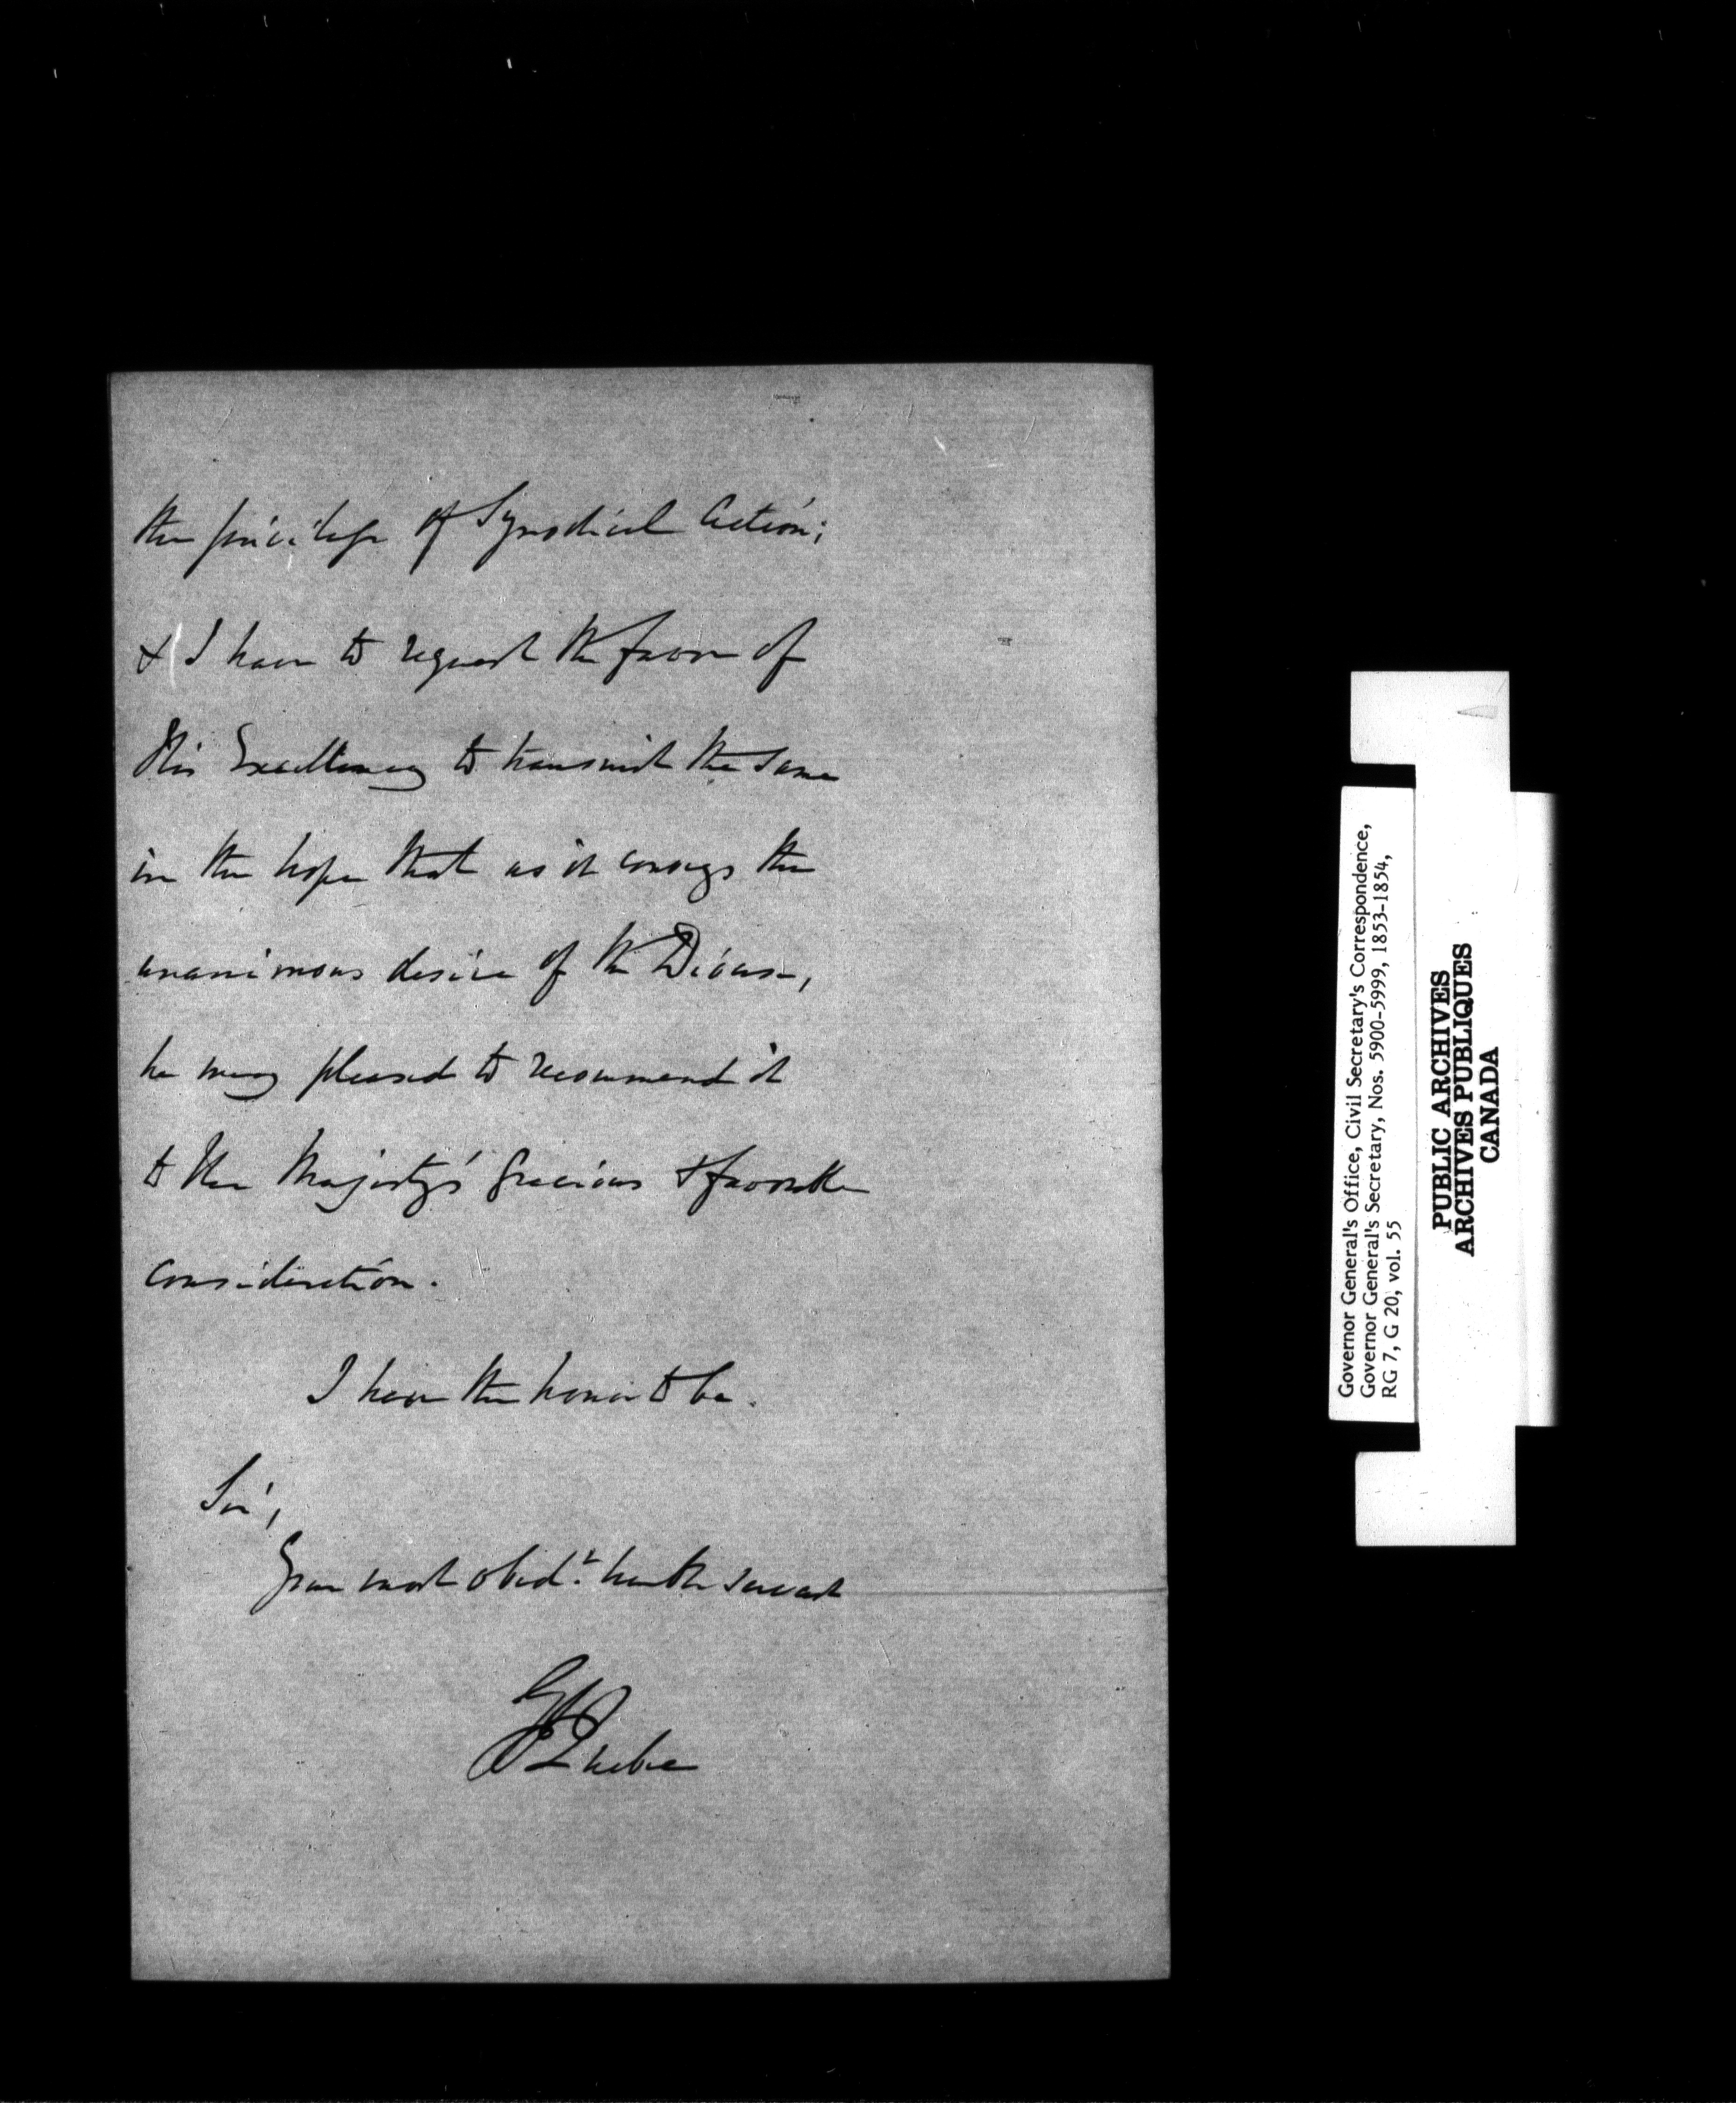 the privilege of Synodical Action;
& I have to request the favor of
His Excellency to transmit the same
in the hope that as it conveys the
unanimous desire of the Diocese,
he may pleased to recommend it
to Her Majesty's Gracious & favorable
consideration.
I have the honor to be.
Sir,
Your most obedt. humble servant
G J Quebec
Governor General's Office, Civil Secretary's Correspondence,
Governor General's Secretary, Nos. 5900-5999, 1853-1854,
RG 7, G 20, vol. 55
PUBLIC ARCHIVES
ARCHIVES PUBLIQUES
CANADA